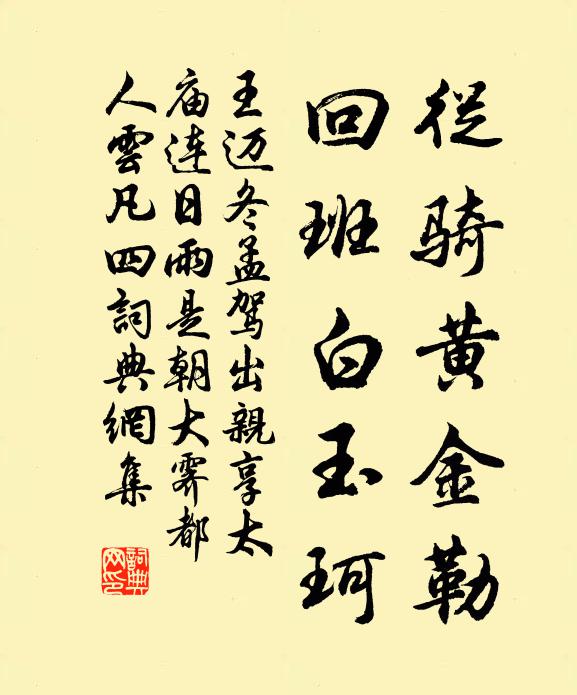 從骑黄金勒
回班白玉珂
王迈冬孟駕出親享太
庙連日雨是朝大霁都
人雲凡四詞典網集
詞典
网印